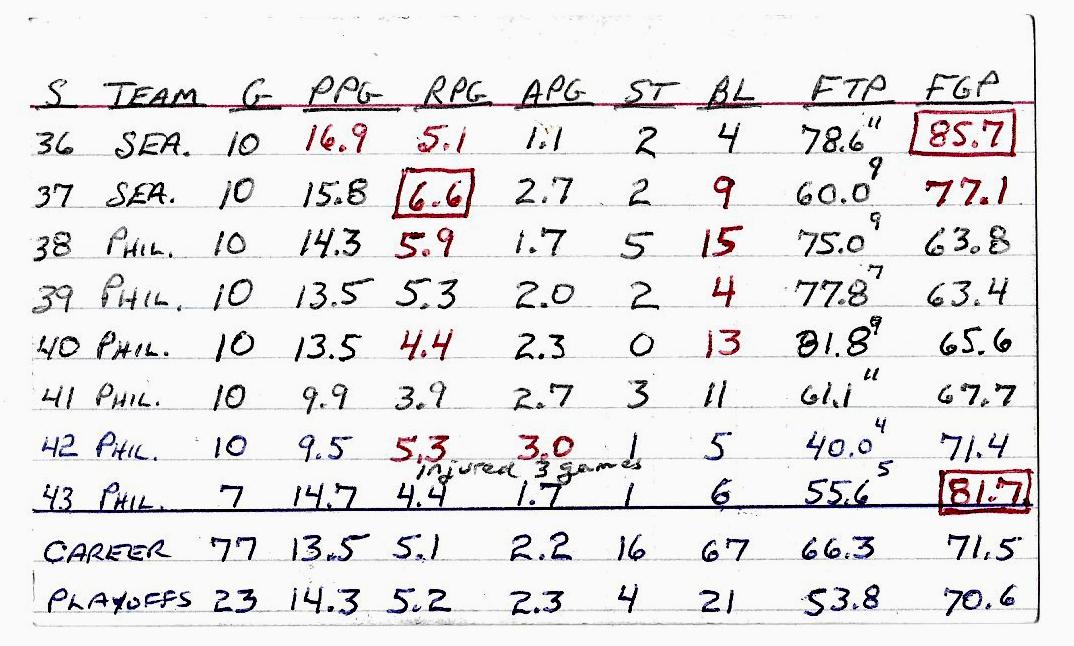 S TEAM G PPG RPG APG ST BL FTP FGP
36 SEA. 10 16.9 5.1 1.1 2 4 78.6 11 85.7
37 SEA. 10 15.8 6.6 2.7 2 9 60.0 9 77.1
38 PHIL. 10 14.3 5.9 1.7 5 15 75.0 9 63.8
39 PHIL. 10 13.5 5.3 2.0 2 4 77.8 7 63.4
40 PHIL. 10 13.5 4.4 2.3 0 13 81.8 9 65.6
41 PHIL. 10 9.9 3.9 2.7 3 11 61.1 11 67.7
42 PHIL. 10 9.5 5.3 3.0 1 5 40.0 4 71.4
injured 3 games
43 PHIL. 7 14.7 4.4 1.7 1 6 55.6 5 81.7
CAREER 77 13.5 5.1 2.2 16 67 66.3 71.5
PLAYOFFS 23 14.3 5.2 2.3 4 21 53.8 70.6